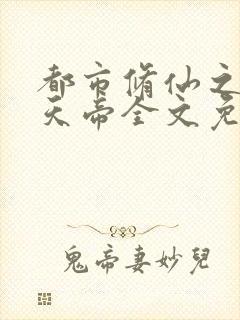 都市修仙之
天帝全文免
鬼帝妻妙兒